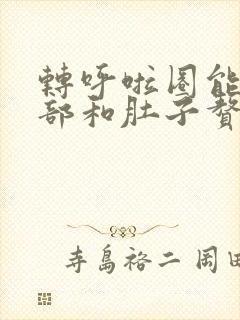 轉呼啦圈能
部和肚子贅
寺島裕二 岡田